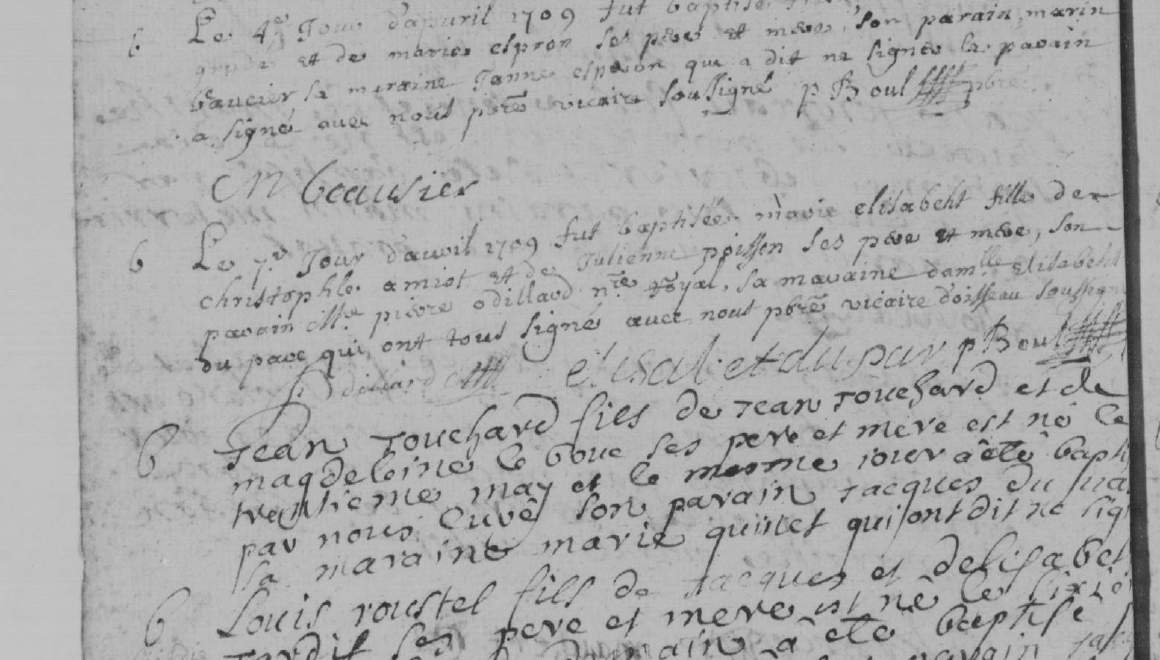 b Le 4e Jour d'apvril 1709 fut baptisé
et de marie espron ses pere et mere, son parain marin
baucier sa maraine Janne espron qui a dit ne signer le parain
a signé avec nous pbre vicaire soussigné p Boul pbre
M beausier
b Le 7e Jour d'avril 1709 fut baptisée marie elisabeht fille de
christophle amiot et de Julienne poisson ses pere et mere, son
parain Me pierre odillard nre Royal, sa maraine damlle Elisabeht
du parc qui ont tous signé avec nous pbre vicaire d'oisseau soussigné
odillard elisabet du parc p Boul
b Jean Touchard fils de Jean Touchard et de
magdeleine le boue ses pere et mere est né le
trentieme may et le mesme jour a été bapti
par nous Curé son parain Jacques du
sa maraine marie quinet qui ont dit ne sig
b Louis roustel fils de Jacques et delisabet
tardif ses pere et mere est né le sixie
a été baptisé
parain